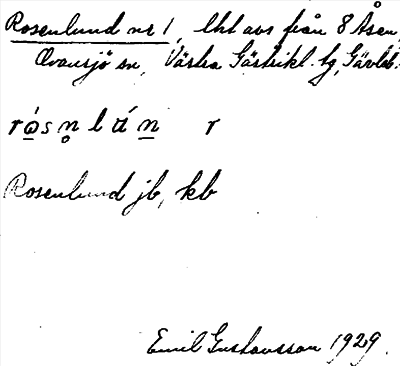 Rosenlund nr 1, lht avs från 8 Åsen,
Ovansjö sn, Västra Gästrikl. tg, Gävleb.
rósn̥lán r
Rosenlund jb, kb
Emil Gustavsson 1929.